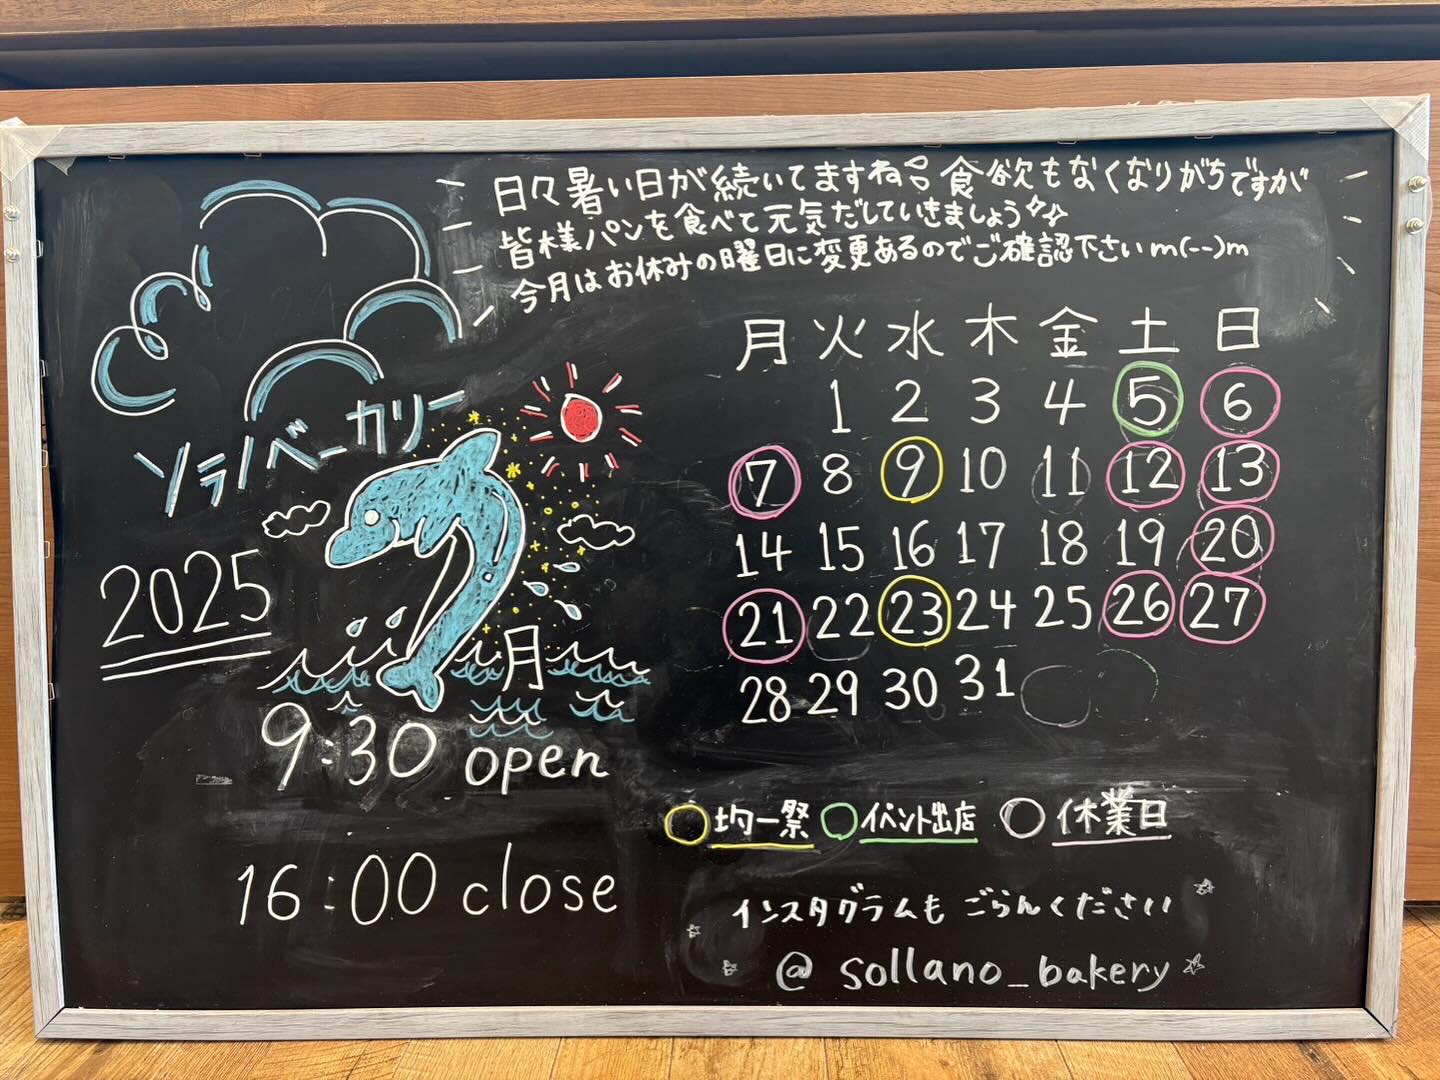 日々暑い日が続いてますね 食欲もなくなりがちですが
皆様パンを食べて元気だしていきましょう
今月はお休みの曜日に変更あるのでご確認下さいm(--)m
ソラノベーカリー
2025
月
9:30 open
16:00 close
月 火 水 木 金 土 日
1 2 3 4 5 6
7 8 9 10 11 12 13
14 15 16 17 18 19 20
21 22 23 24 25 26 27
28 29 30 31
均一祭 イベント出店 休業日
インスタグラムも ごらんください
@ sollano_bakery